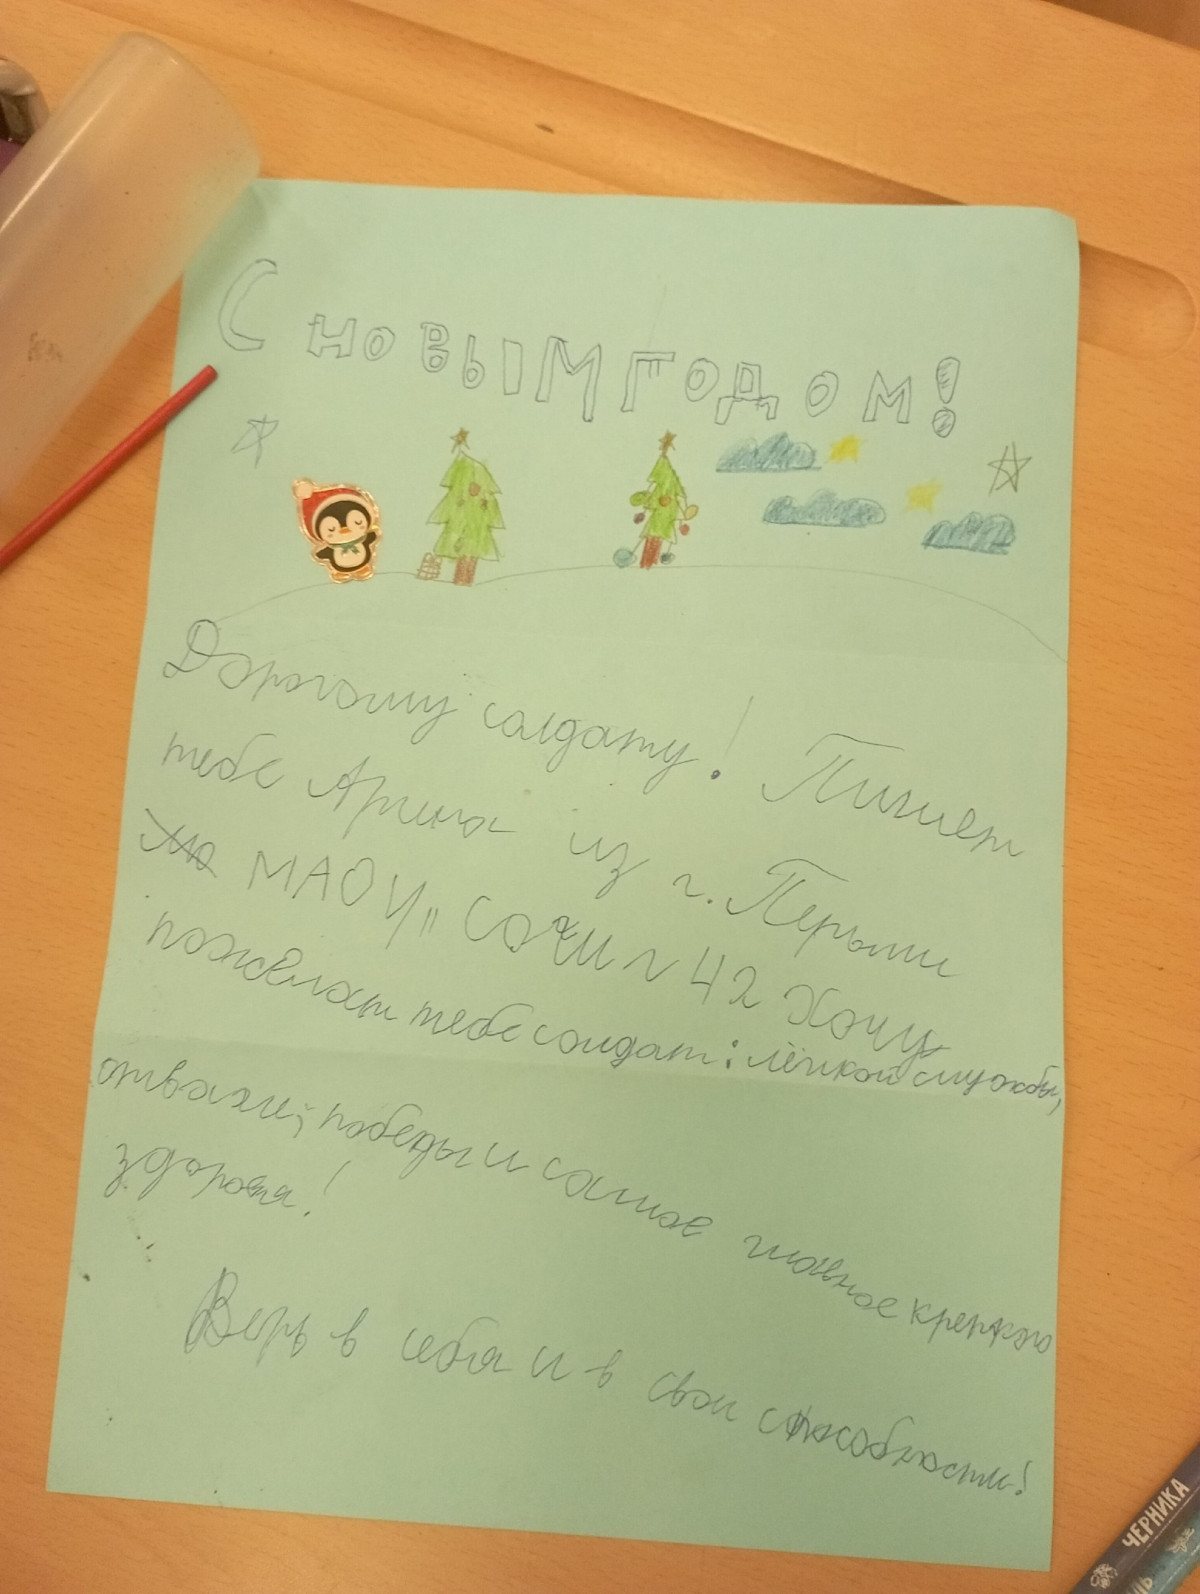 С новым годом!
Дорогому солдату! Пишет
тебе Арина из г. Перьми
МАОУ "СОЧИ N 42 Хочу
пожелат тебе солдат: лёгкой службы,
отваги, победы и самое главное крепкого
здоровя!
Верь в себя и в свои способности!
ЧЕРНИКА